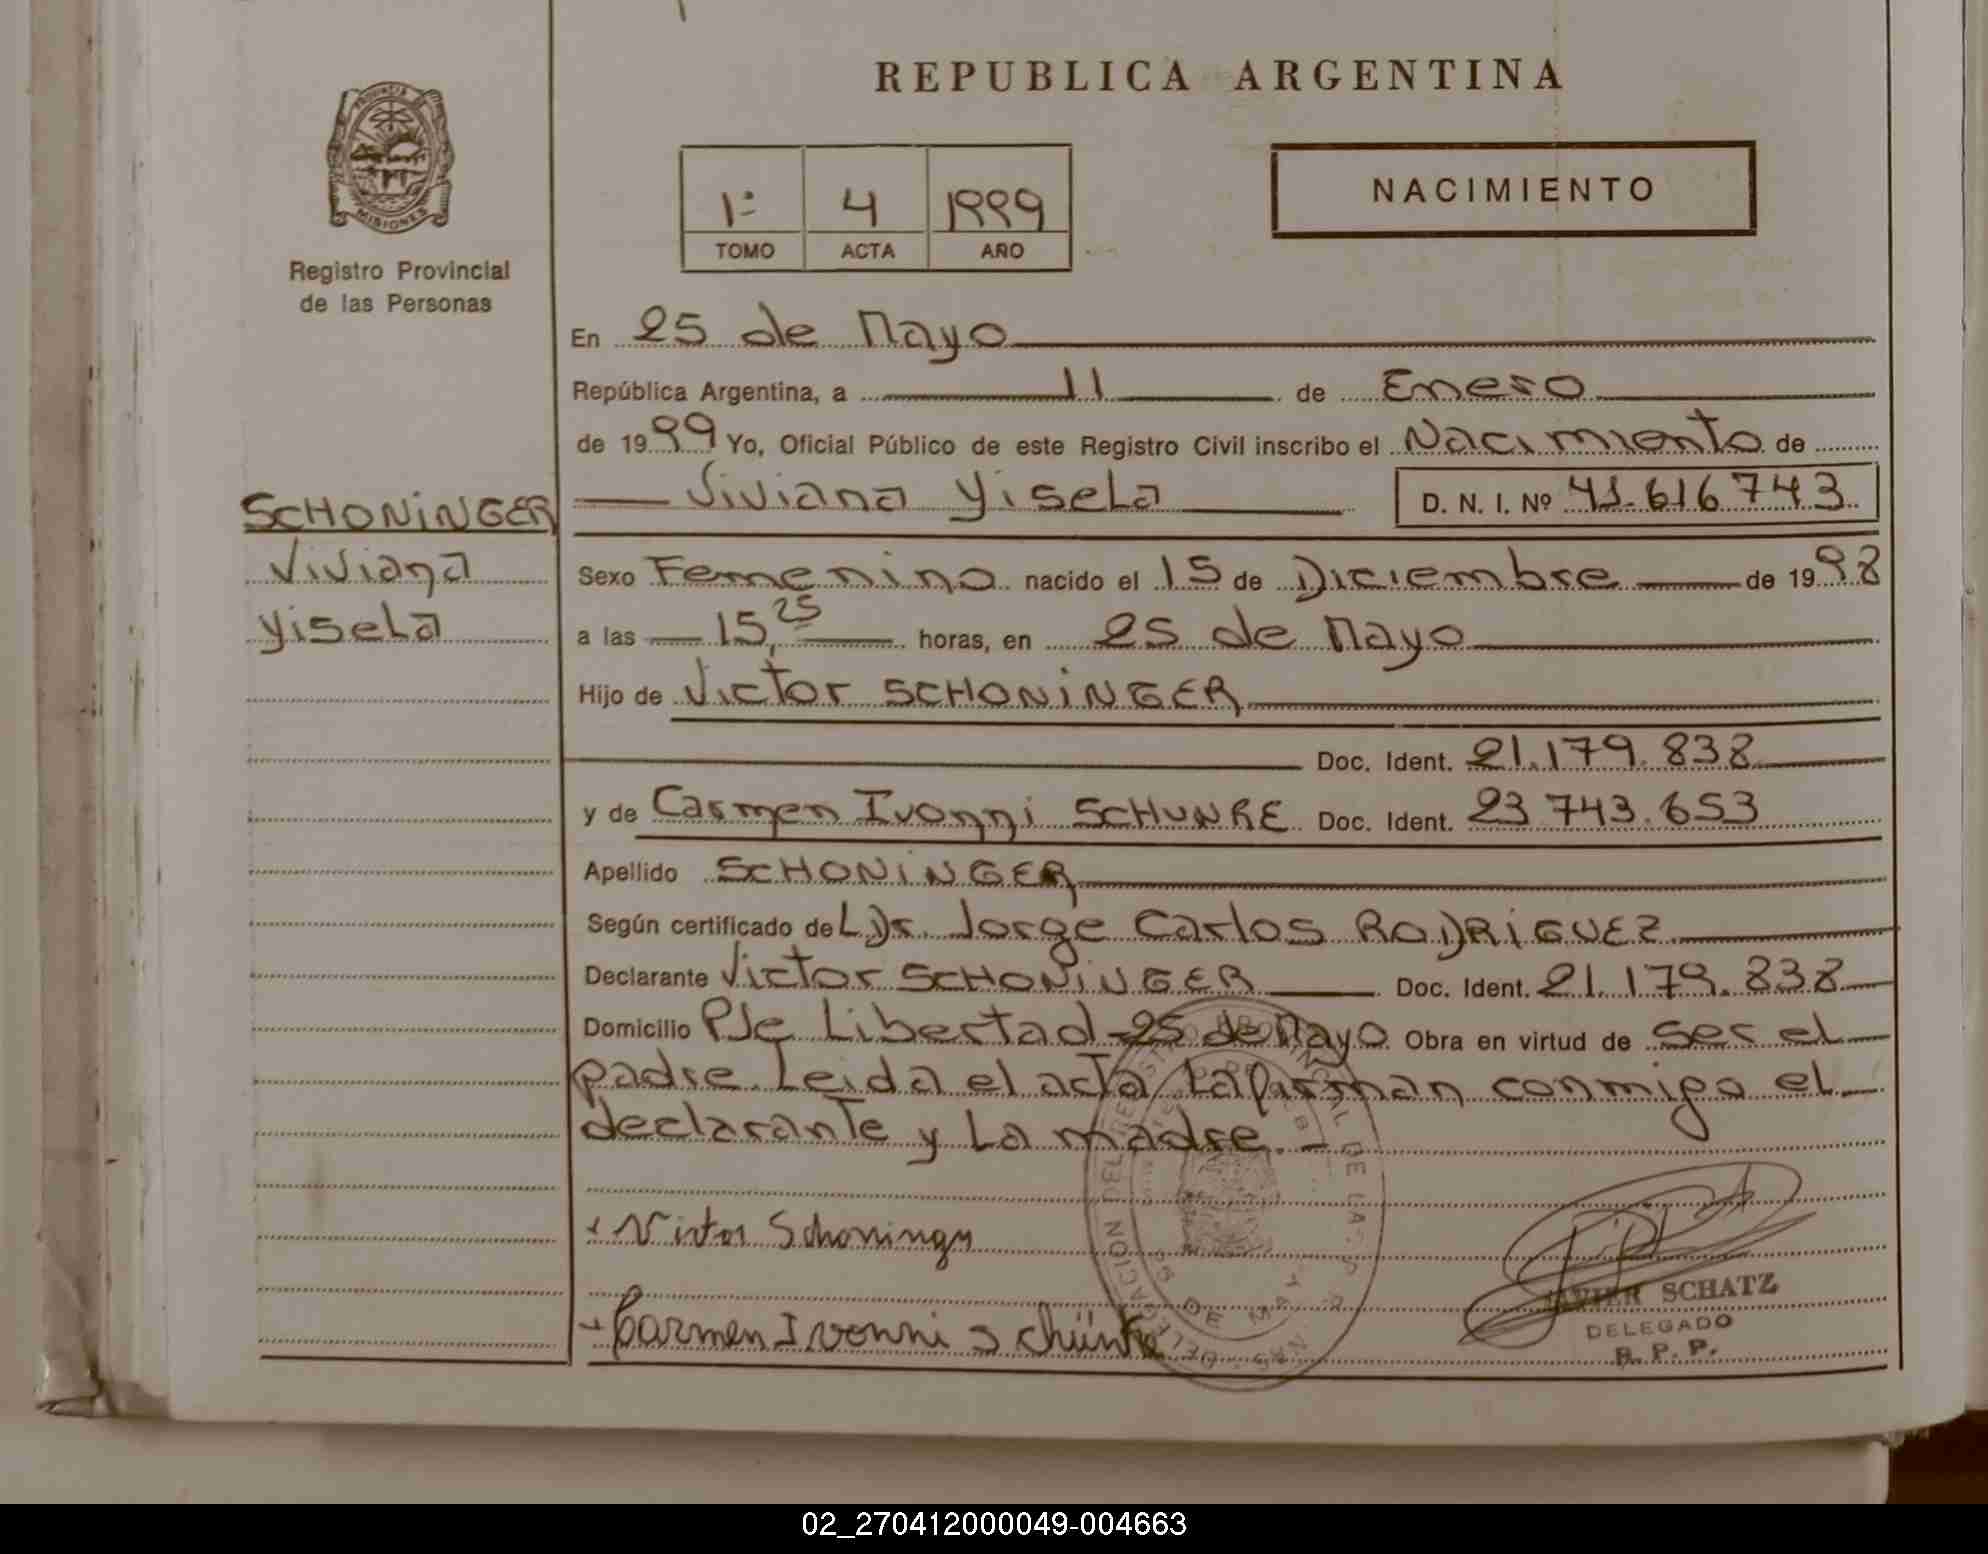 REPUBLICA ARGENTINA
PROVINCIA
MISIONES
Registro Provincial
de las Personas
1º 4 1999
TOMO ACTA AÑO
NACIMIENTO
En 25 de Mayo
República Argentina, a 11 de Enero
de 1999 Yo, Oficial Público de este Registro Civil inscribo el Nacimiento de
Viviana Yisela D. N. I. Nº 41.616.743
SCHONINGER
Viviana
Yisela
Sexo Femenino nacido el 15 de Diciembre de 1998
a las 15,25 horas, en 25 de Mayo
Hijo de Victor SCHONINGER
Doc. Ident. 21.179.838
y de Carmen Ivonni SCHUNKE Doc. Ident. 23.743.653
Apellido SCHONINGER
Según certificado del Dr. Jorge Carlos RODRIGUEZ
Declarante Victor SCHONINGER Doc. Ident. 21.179.838
Domicilio Pje Libertad - 25 de Mayo Obra en virtud de ser el
padre. Leida el acta la firman conmigo el
declarante y la madre. -
Victor Schoninger
Carmen Ivonni Schünke
JAVIER SCHATZ
DELEGADO
R. P. P.
02_270412000049-004663